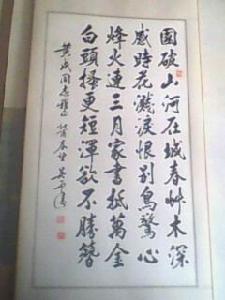 國破山河在城春艸木深
感時花濺淚恨别鳥驚心
烽火連三月家書抵萬金
白頭搔更短渾欲不勝簪
同志雅